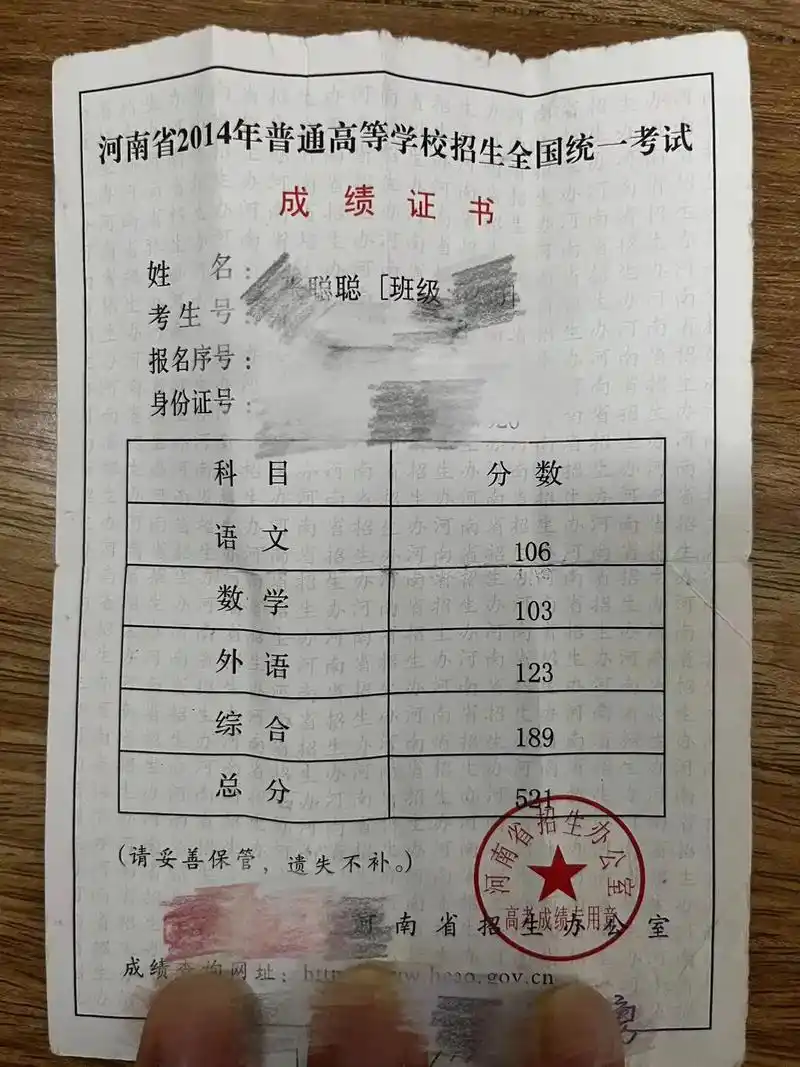 河南省2014年普通高等学校招生全国统一考试
成绩证书
姓名：聪聪 [班级
考生号：
报名序号：
身份证号：
科目 分数
语文 106
数学 103
外语 123
综合 189
总分 521
(请妥善保管，遗失不补。)
河南省招生办公室
河南省招生办公室
高考成绩专用章
成绩查询网址：http www.heao.gov.cn